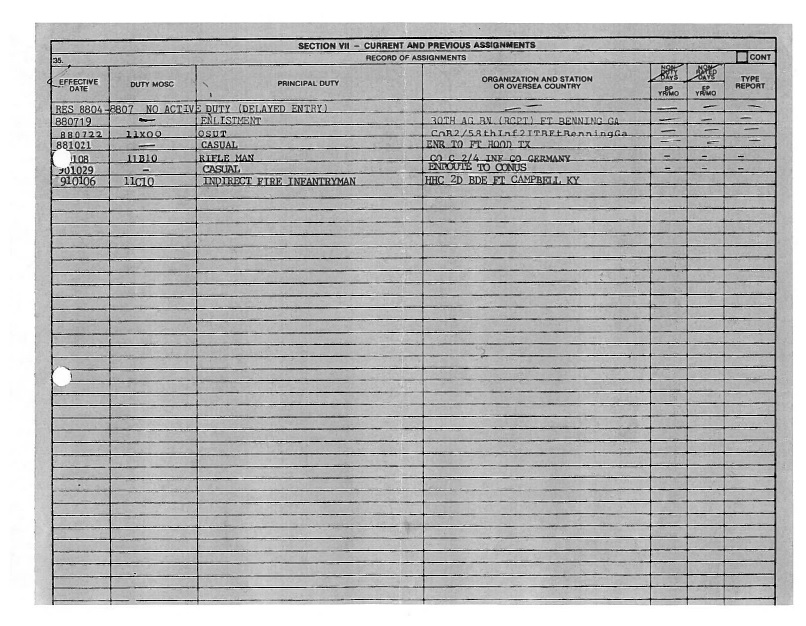 SECTION VII – CURRENT AND PREVIOUS ASSIGNMENTS
35. RECORD OF ASSIGNMENTS CONT
EFFECTIVE DATE DUTY MOSC PRINCIPAL DUTY ORGANIZATION AND STATION OR OVERSEA COUNTRY NON-DUTY DAYS BP YR/MO NON-RATED DAYS EP YR/MO TYPE REPORT
RES 8804-8807 NO ACTIVE DUTY (DELAYED ENTRY) — — — — —
880719 — ENLISTMENT 30TH AG BN (RCPT) FT BENNING GA — — —
880722 11X00 OSUT CoB2/58thInf2ITBFtBenningGa — — —
881021 — CASUAL ENR TO FT HOOD TX — — —
108 11B10 RIFLE MAN CO C 2/4 INF CO GERMANY - - -
901029 - CASUAL ENROUTE TO CONUS - - -
910106 11C10 INDIRECT FIRE INFANTRYMAN HHC 2D BDE FT CAMPBELL KY